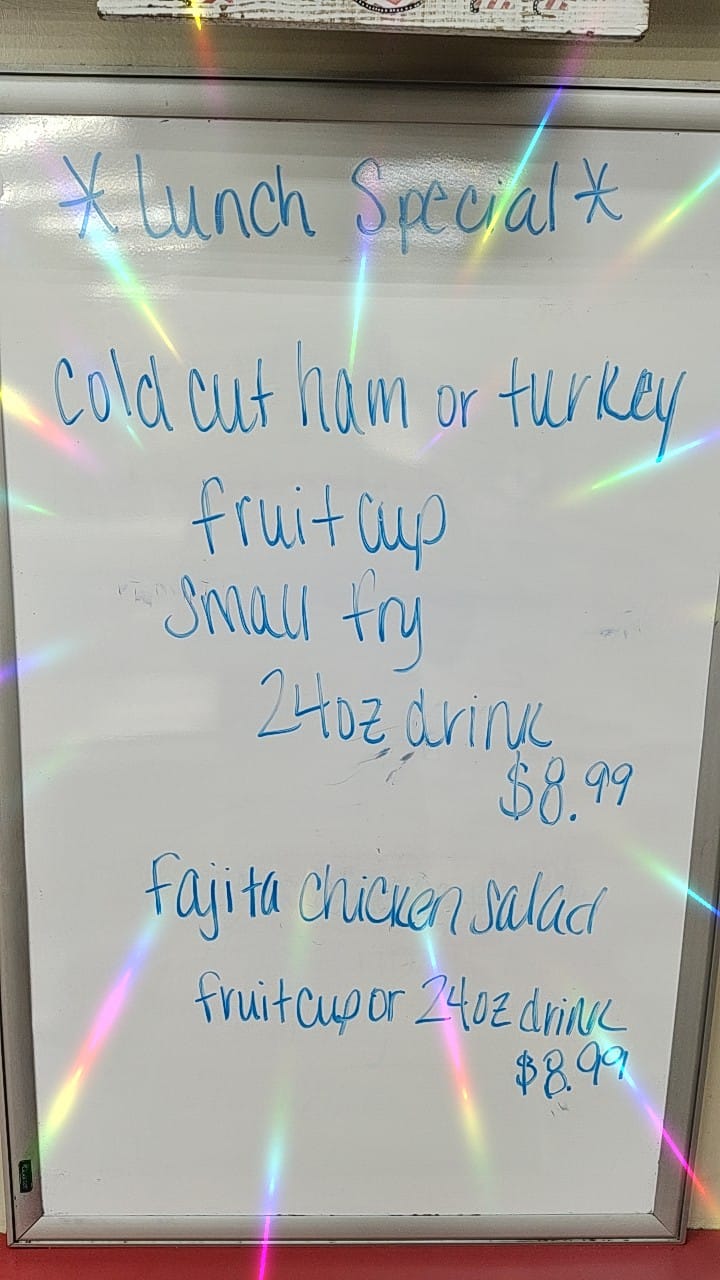 *Lunch Special*
cold cut ham or turkey
fruit cup
small fry
24oz drink
$8.99
fajita chicken salad
fruit cup or 24oz drink
$8.99